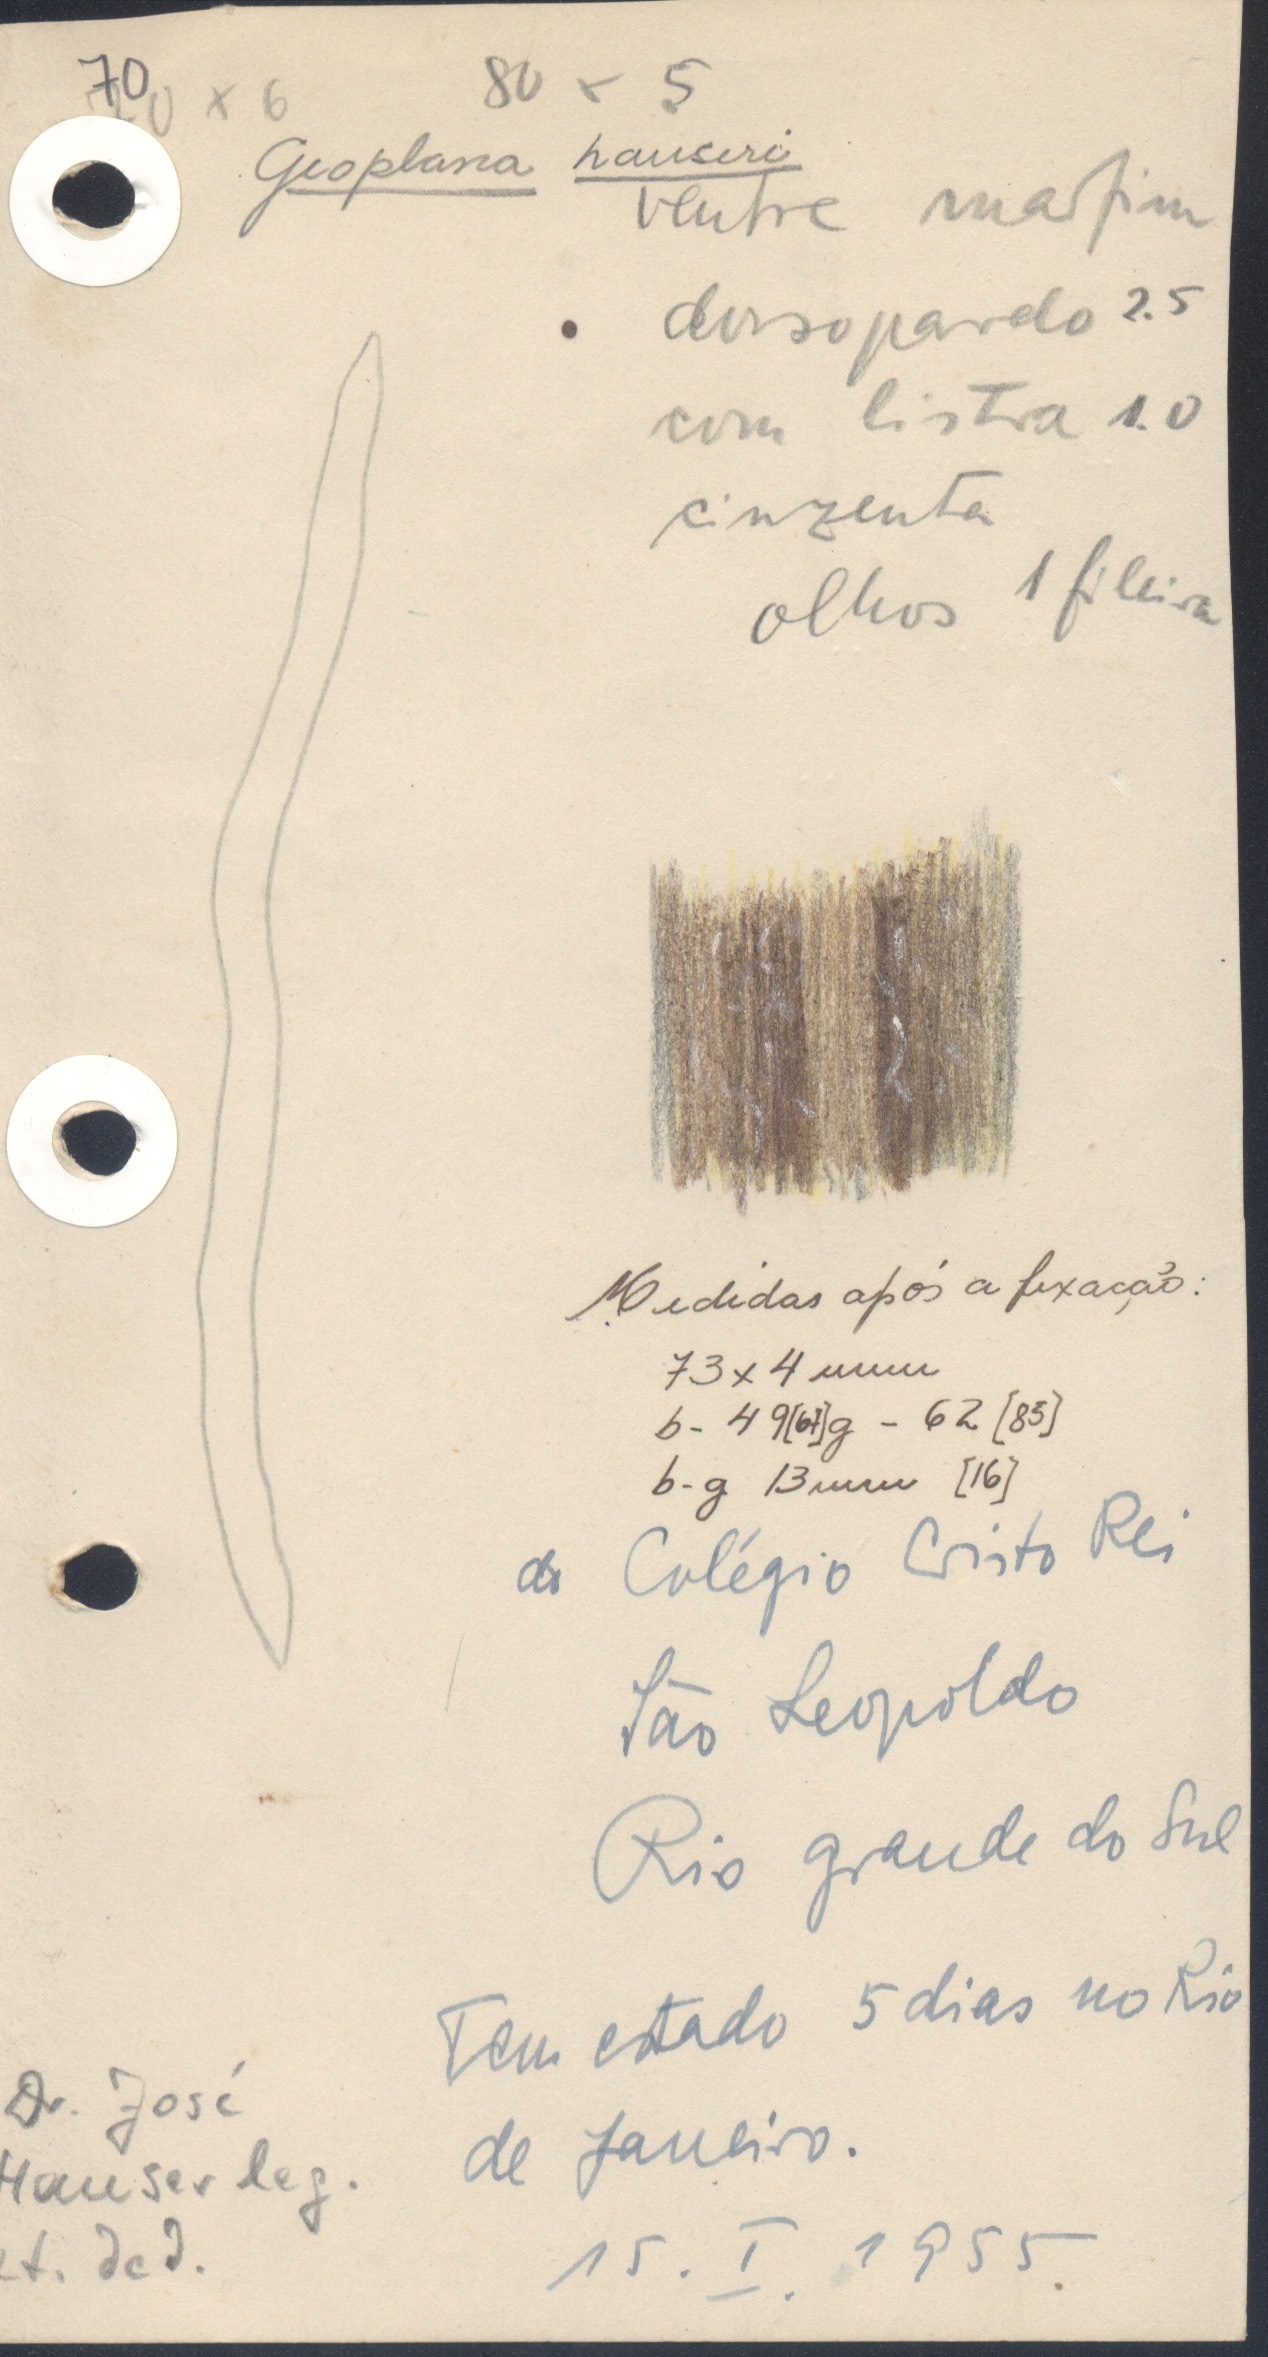 70 x 6 80 x 5
Geoplana hauseri
ventre marfim
dorso pardo 2.5
com listra 1.0
cinzenta
olhos 1 fileira
Medidas após a fixação:
73 x 4 mm
b - 49 [67] g - 62 [85]
b-g 13 mm [16]
do Colégio Cristo Rei
São Leopoldo
Rio grande do Sul
Tem estado 5 dias no Rio
de Janeiro.
Dr. José
Hauser leg.
et. ded.
15. I. 1955.